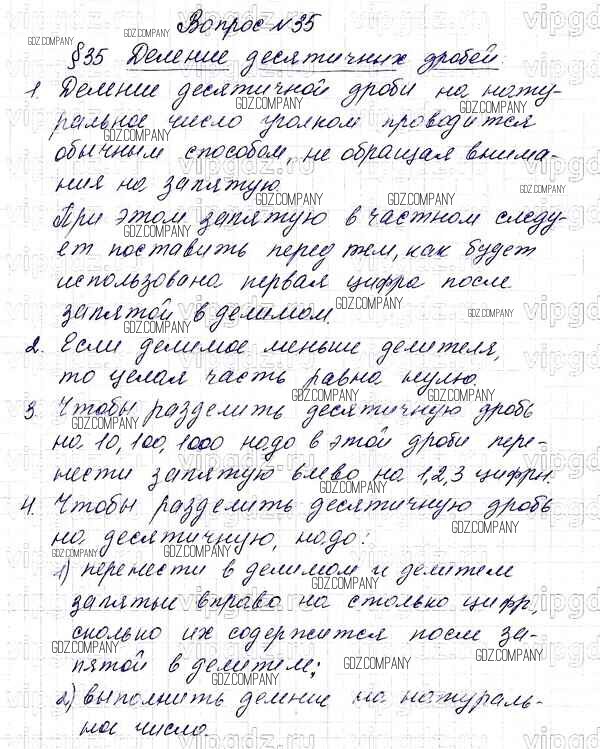 Вопрос №35
§35 Деление десятичных дробей.
1. Деление десятичной дроби на нату-
ральное число уголком проводится
обычным способом, не обращая внима-
ния на запятую.
При этом запятую в частном следу-
ет поставить перед тем, как будет
использована первая цифра после
запятой в делимом.
2. Если делимое меньше делителя,
то целая часть равна нулю.
3. Чтобы разделить десятичную дробь
на 10, 100, 1000 надо в этой дроби пере-
нести запятую влево на 1, 2, 3 цифры.
4. Чтобы разделить десятичную дробь
на десятичную, надо:
1) перенести в делимом и делителе
запятые вправо на столько цифр,
сколько их содержится после за-
пятой в делителе;
2) выполнить деление на натураль-
ное число.